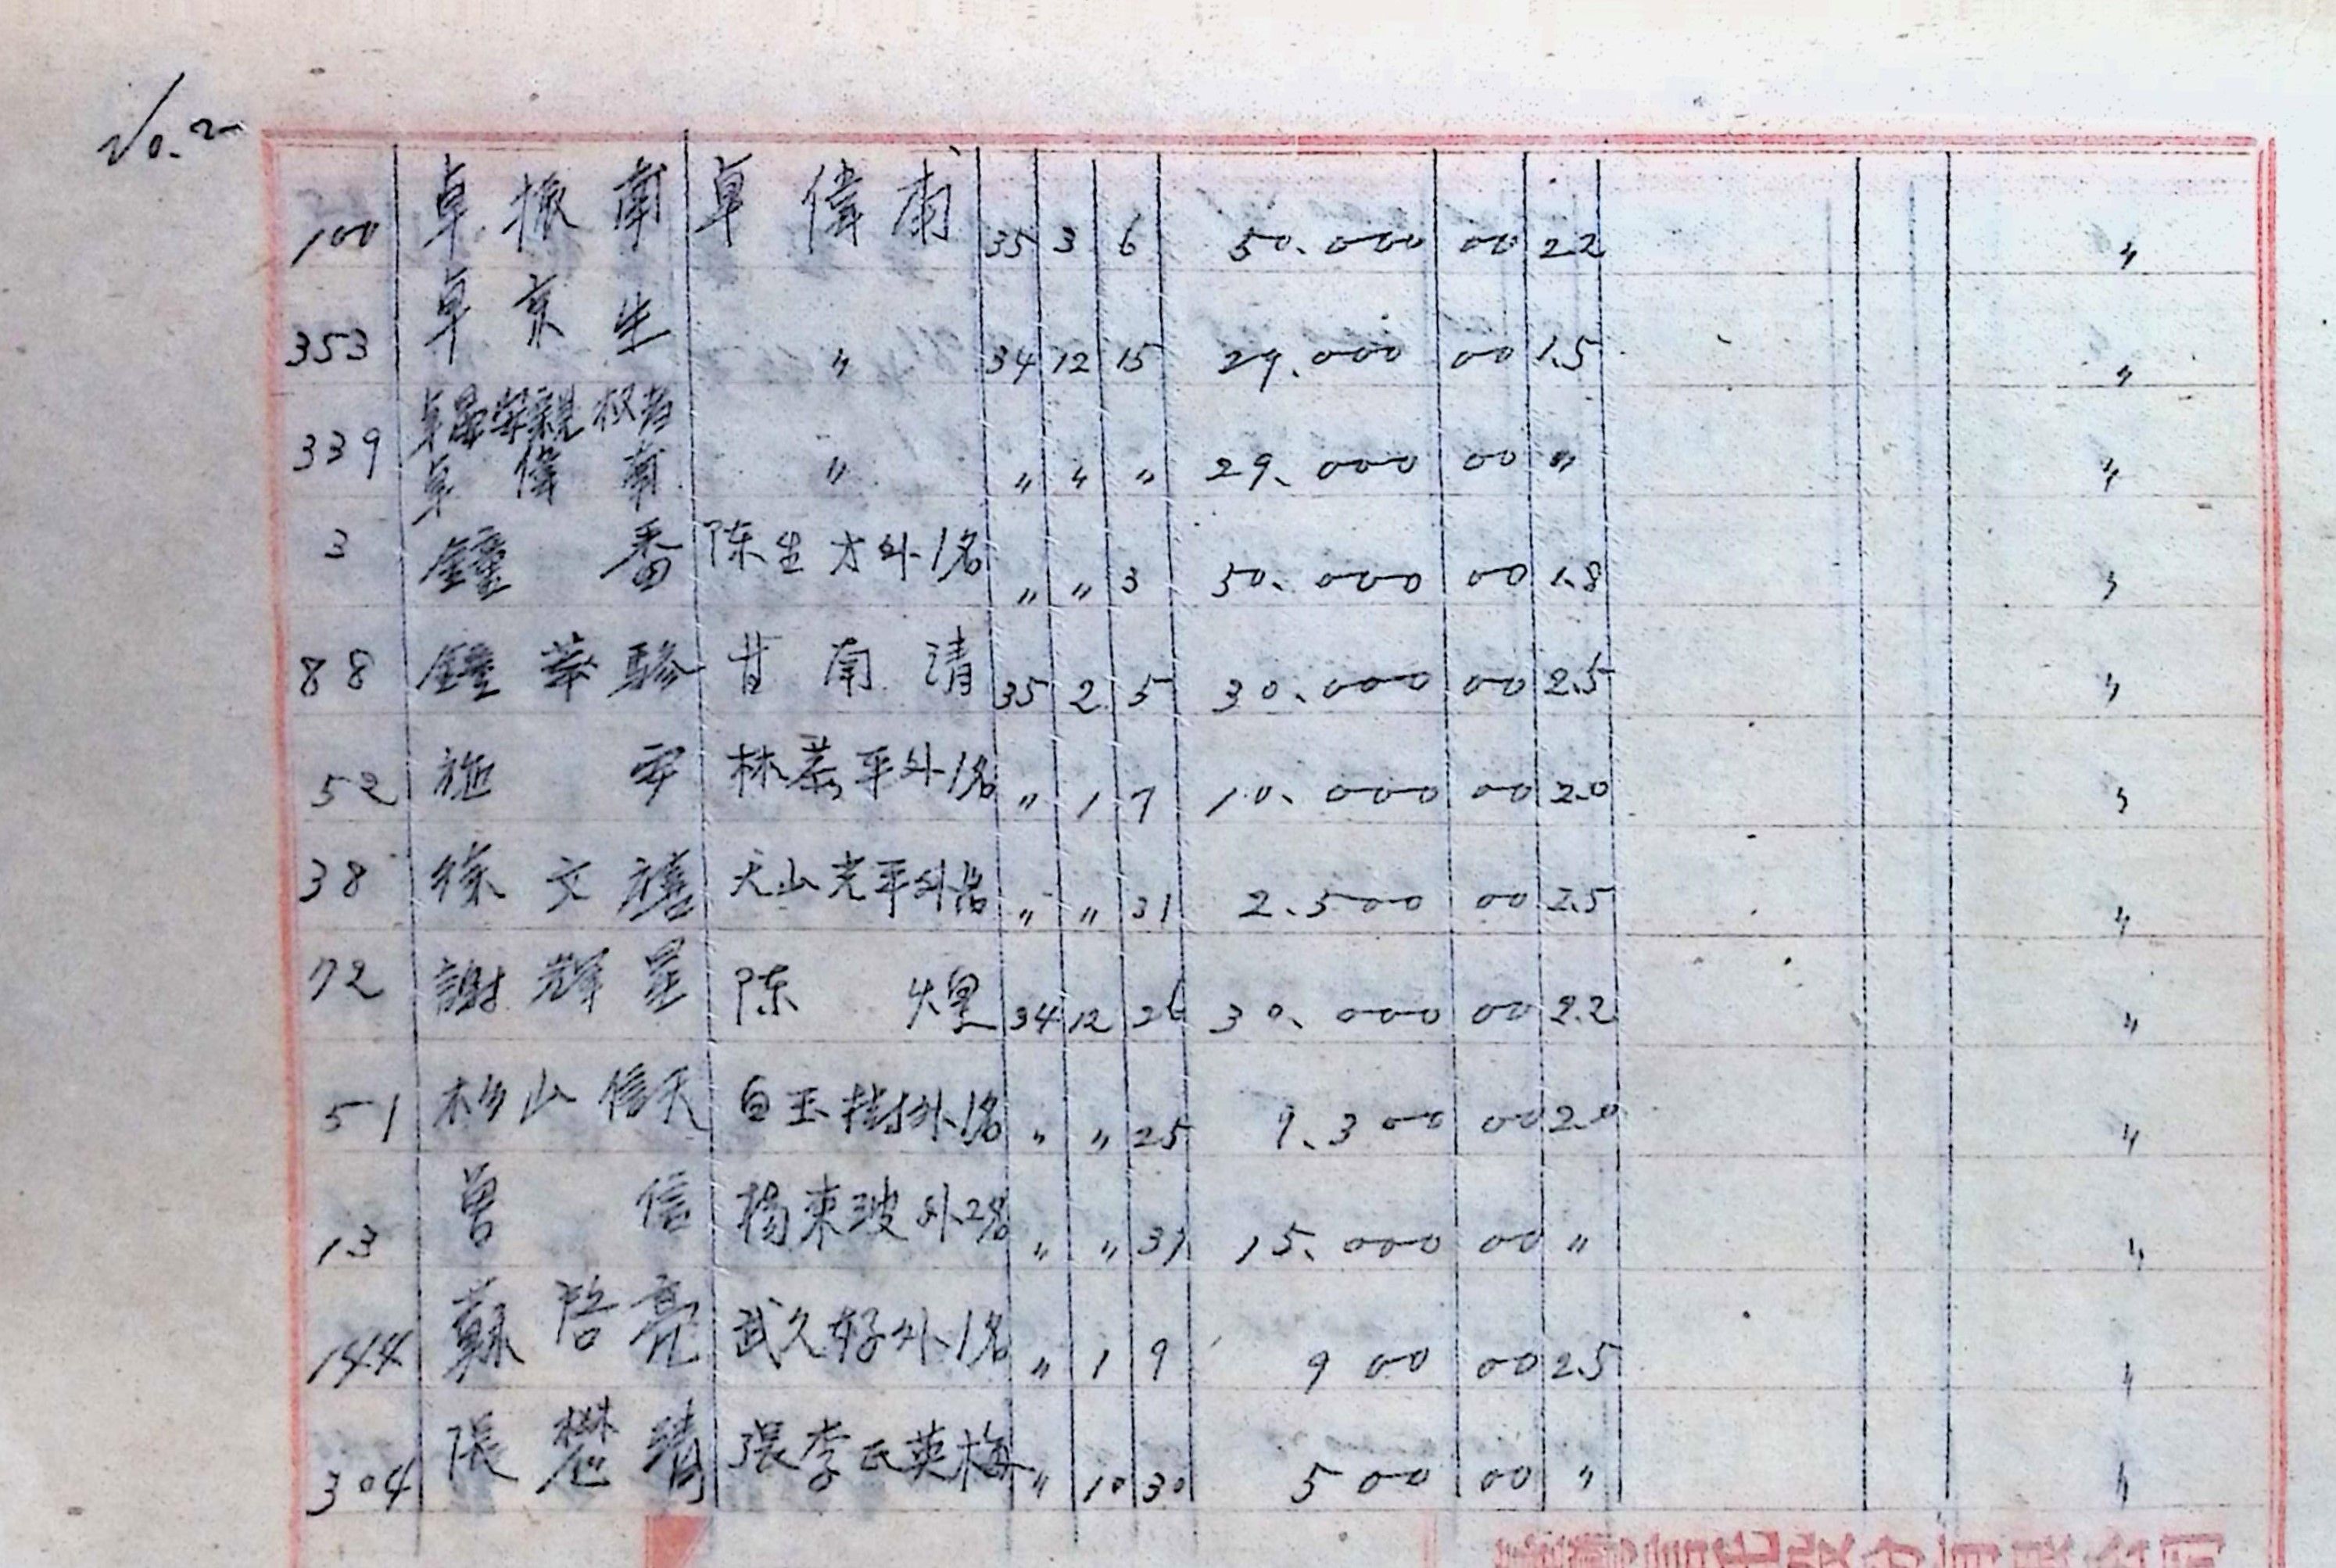 No. 2
100 卓振南 卓偉南 35 3 6 50.000 00 22 〃
353 卓京生 〃 34 12 15 29.000 00 1.5 〃
339 卓 親权者 卓偉南 〃 〃 〃 〃 29.000 00 〃 〃
3 鐘番 陈生才外1名 〃 〃 3 50.000 00 1.8 〃
88 鐘華 甘南清 35 2 5 30.000 00 2.5 〃
52 施 林恭平外1名 〃 1 7 10.000 00 2.0 〃
38 徐文禧 天山光平外 〃 〃 31 2.500 00 2.5 〃
72 謝輝星 陈煌 34 12 26 30.000 00 2.2 〃
51 杉山信天 白玉樹外1名 〃 〃 25 9.300 00 2.0 〃
13 曽信 楊東波外2名 〃 〃 31 15.000 00 〃 〃
144 蘇啓亮 武久好外1名 〃 1 9 900 00 25 〃
304 張懋清 張李氏英梅 〃 10 30 500 00 〃 〃